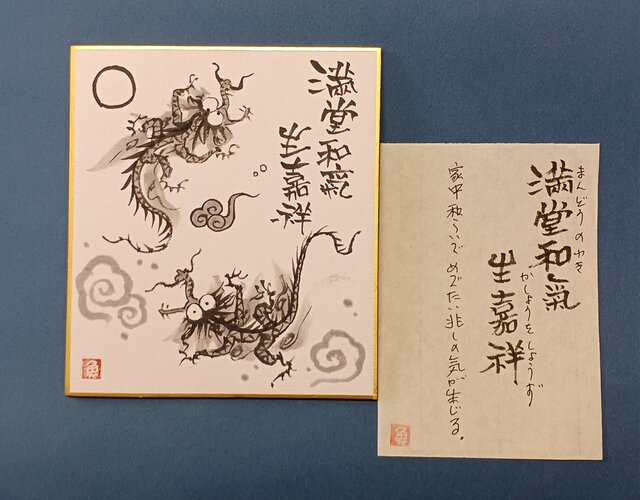 満堂和氣
生嘉祥
まんどうのわき
満堂和氣
かしょうをしょうず
生嘉祥
家中和らいで めでたい兆しの気が生じる。